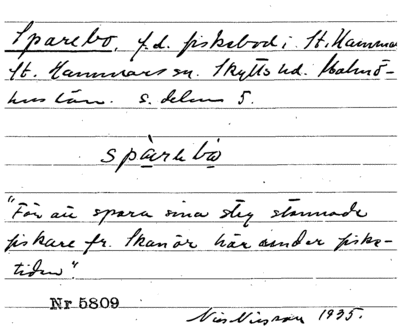 Sparebo, f.d. fiskebod i St. Hammar
St. Hammars sn. Skytts hd. Malmö-
hus län. s. delen 5.
spàrebo
"För att spara sina steg stannade
fiskare fr. Skanör här under fiske-
tiden".
Nr 5809
Nils Nilsson 1935.